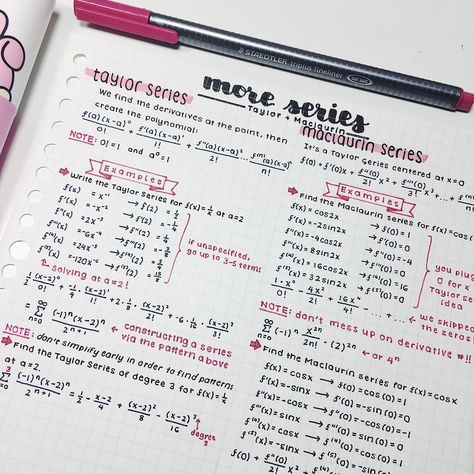 STAEDTLER triplus fineliner
more series
Taylor + Maclaurin
taylor series
We find the derivatives at the point, then
create the polynomial:
f(a)(x-a)⁰/0! + f'(a)(x-a)¹/1! + f''(a)(x-a)²/2! ... fⁿ(a)(x-a)ⁿ/n!
NOTE: 0! = 1 and a⁰ = 1
Examples
Write the Taylor Series for f(x)=1/x at a=2
f(x) = x⁻¹ → f(2) = 1/2
f'(x) = -x⁻² → f'(2) = -1/4
f''(x) = 2x⁻³
f'''(x) = -6x⁻⁴
f⁽⁴⁾(x) = 24x⁻⁵
f⁽⁵⁾(x) = -120x⁻⁶
if unspecified,
go up to 3-5 terms
solving at a=2!
Σ n=0 ∞ (-1)ⁿ(x-2)ⁿ/2ⁿ⁺¹
constructing a series
via the pattern above
NOTE: don't simplify early in order to find patterns
Find the Taylor Series of degree 3 for f(x)=1/x
at a=2.
Σ n=0 3 (-1)ⁿ(x-2)ⁿ/2ⁿ⁺¹ = 1/2 - (x-2)/4 + (x-2)²/8 - (x-2)³/16
degree 3
maclaurin series
It's a Taylor Series centered at x=0
f(0) + f'(0)x + f''(0)/2! x² + f'''(0)/3! x³ ...
Examples
Find the Maclaurin series for f(x)=cos
f(x) = cos2x → f(0) = 1
f'(x) = -2sin2x → f'(0) = 0
f''(x) = -4cos2x → f''(0) = -4
f'''(x) = 8sin2x → f'''(0) = 0
f⁽⁴⁾(x) = 16cos2x → f⁽⁴⁾(0) = 16
f⁽⁵⁾(x) = 32sin2x → f⁽⁵⁾(0) = 0
you plu
0 for x
Taylor s
idea
1·x⁰/0! - 4x²/2! + 16x⁴/4! ...
we skipped
the zeros!
NOTE: don't mess up on derivative #!!
Σ n=0 ∞ (-1)ⁿ x²ⁿ/2n! · (2)²ⁿ ← or 4ⁿ
Find the Maclaurin series for f(x)=cosx
f(x) = cosx → f(0) = cos(0) = 1
f'(x) = -sinx → f'(0) = -sin(0) = 0
f''(x) = -cosx → f''(0) = -cos(0) = -1
f'''(x) = sinx → f'''(0) = sin(0) = 0
f⁽⁴⁾(x) = cosx → f⁽⁴⁾(0) = cos(0) = 1